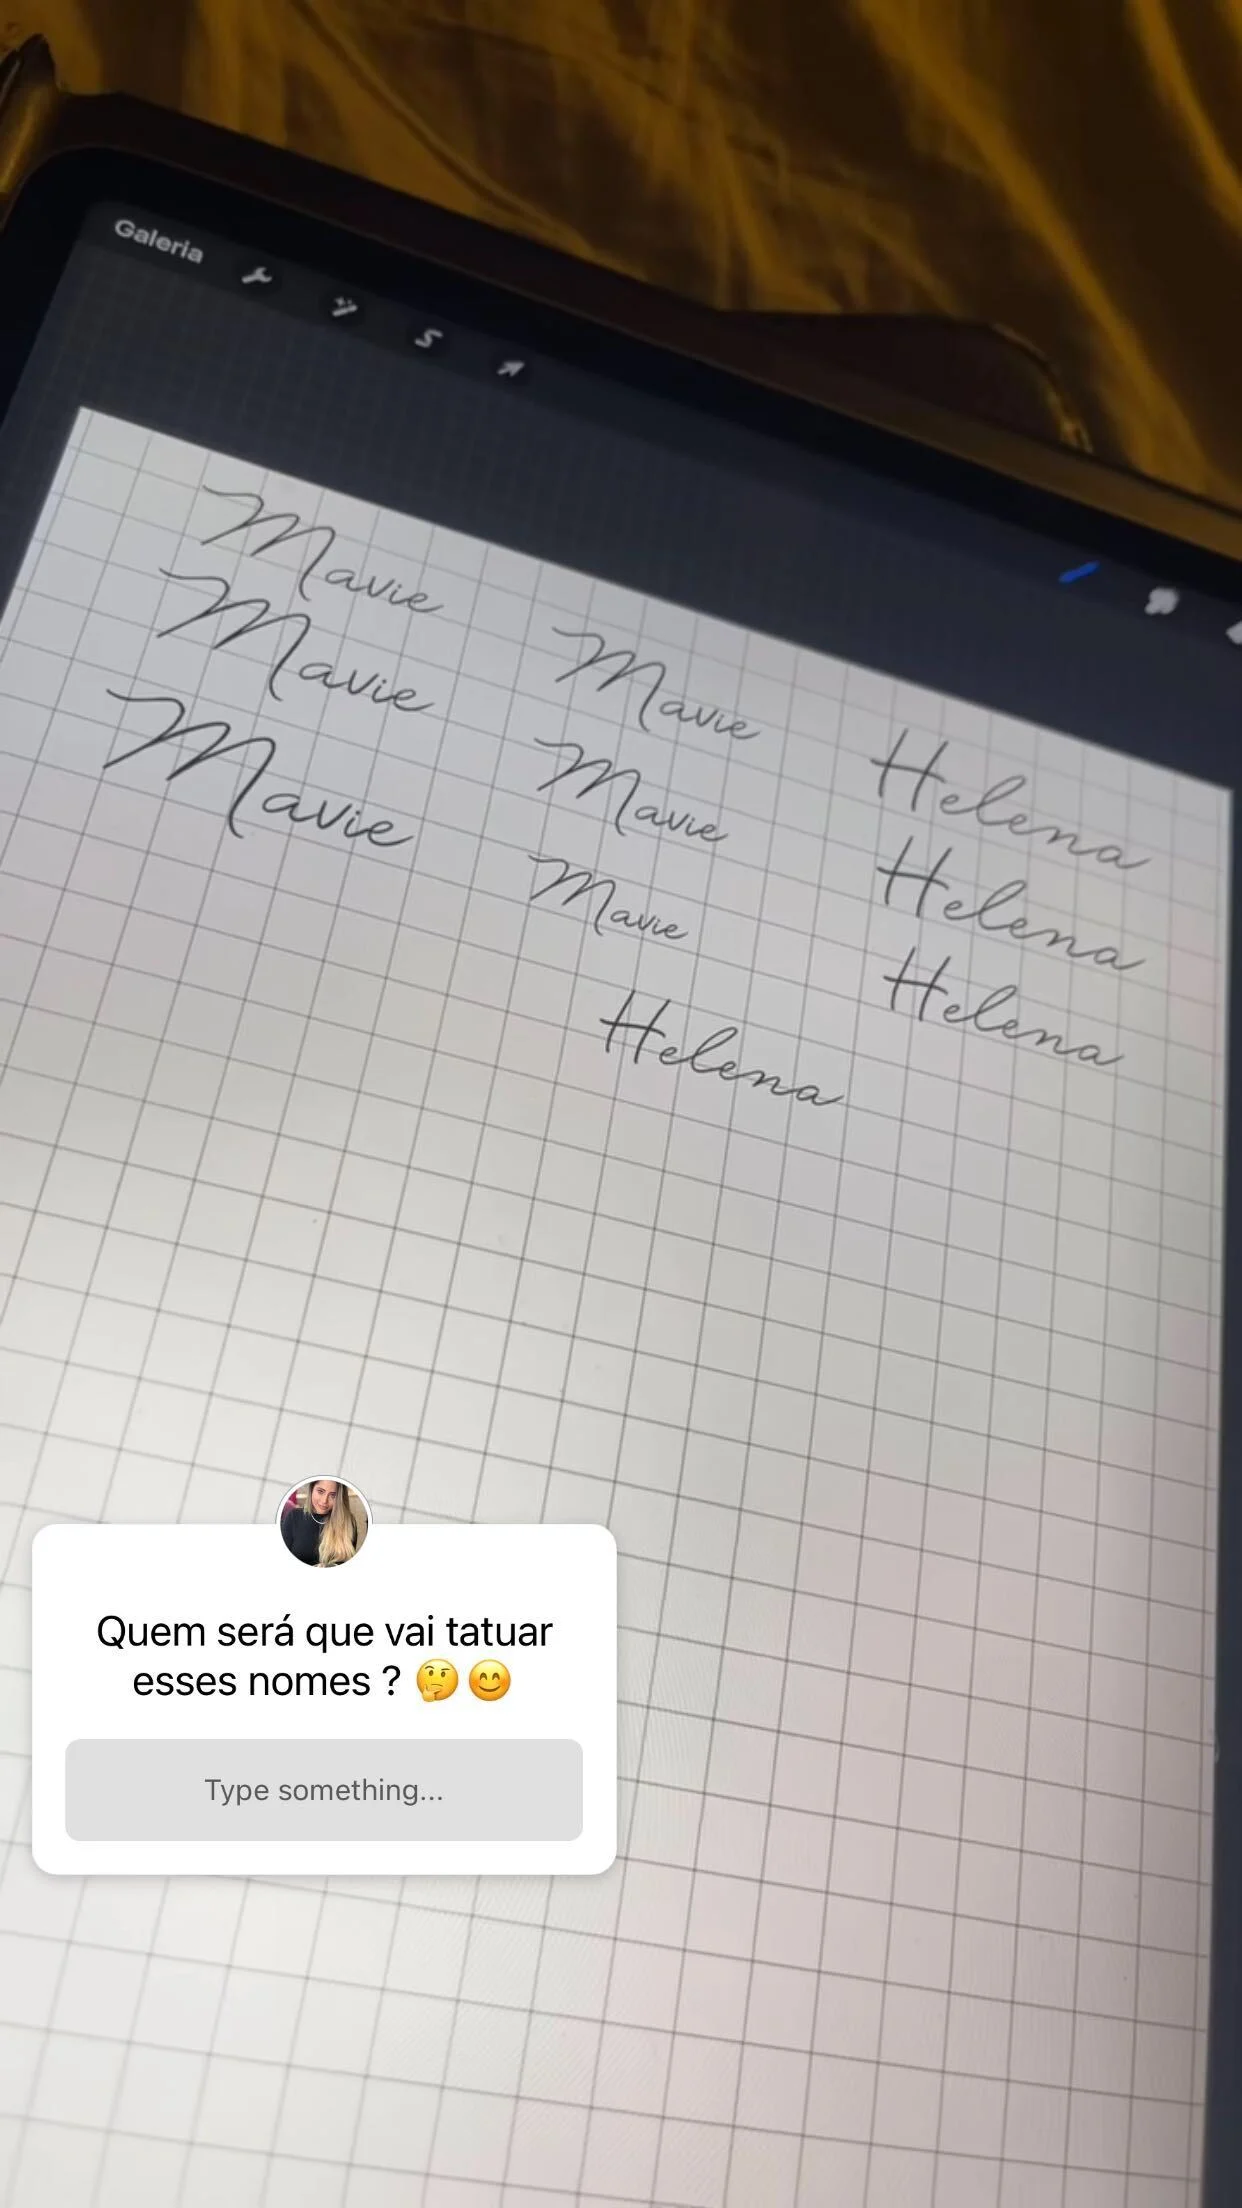 Galeria
Mavie
Mavie
Mavie
Mavie
Mavie
Mavie
Helena
Helena
Helena
Helena
Quem será que vai tatuar
esses nomes ? 🤔😊
Type something...